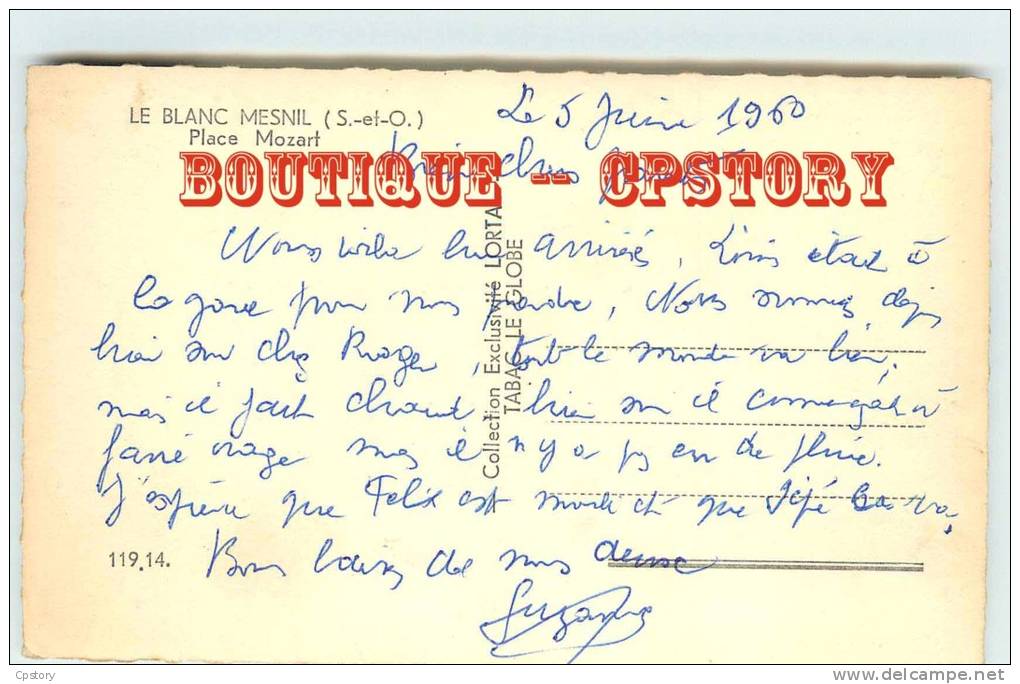 LE BLANC MESNIL (S.-et-O.)
Place Mozart
Le 5 Juin 1960
Bien chers
BOUTIQUE -- CPSTORY
Nous voila bien arrivés, était à
la gare pour nous prendre, Nous sommes
hier soir chez Roger, tout le monde va bien,
mais il fait chaud, hier soir il commençait à
faire orage mais il n'y a pas eu de pluie.
J'espère que Felix est et que va,
Bons baisers de nous deux
Suzanne
Collection Exclusivité LORTA
TABAC LE GLOBE
119.14.
Cpstory
delcampe.net